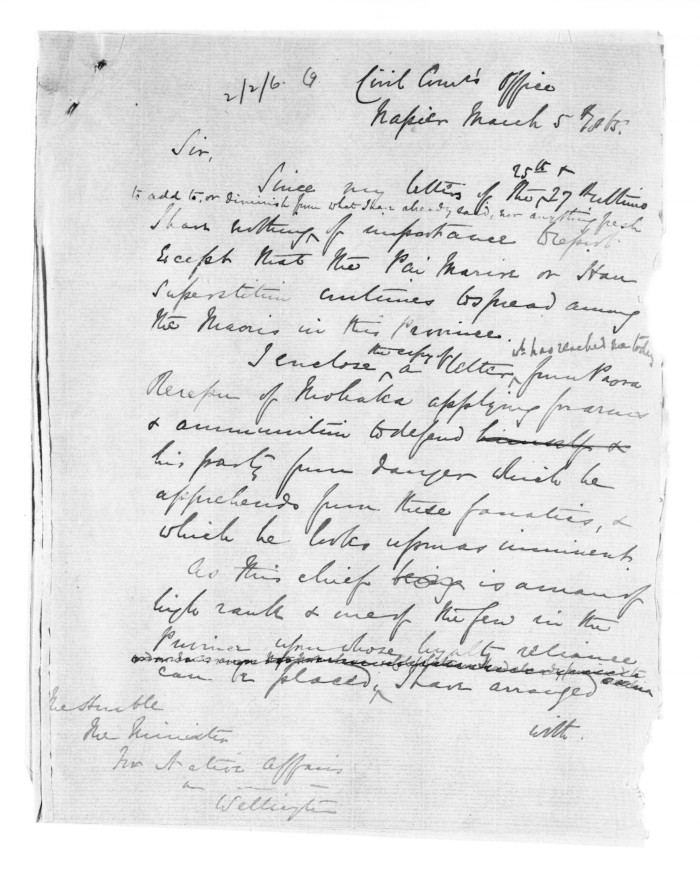 2/2/6. 9. Civil Com.r's Office
Napier March 5th 1865.
Sir,
25th &
Since my letters of the 27 Ultimo
to add to, or diminish from what I have already said, nor anything fresh
I have nothing of importance to report
Except that the Pai Marire or Hau
Superstition continues to spread among
the Maoris in this Province.
the copy of wh. has reached me today
I enclose a letter from Paora
Rerepu of Mohaka applying for arms
& ammunition to defend himself &
his party from danger which he
apprehends from these fanatics, &
which he looks upon as imminent
As this chief being is a man of
high rank & one of the few in the
Province upon whose loyalty reliance
can be placed, I have arranged
with.
The Honble
The Minister
For Native Affairs
Wellington